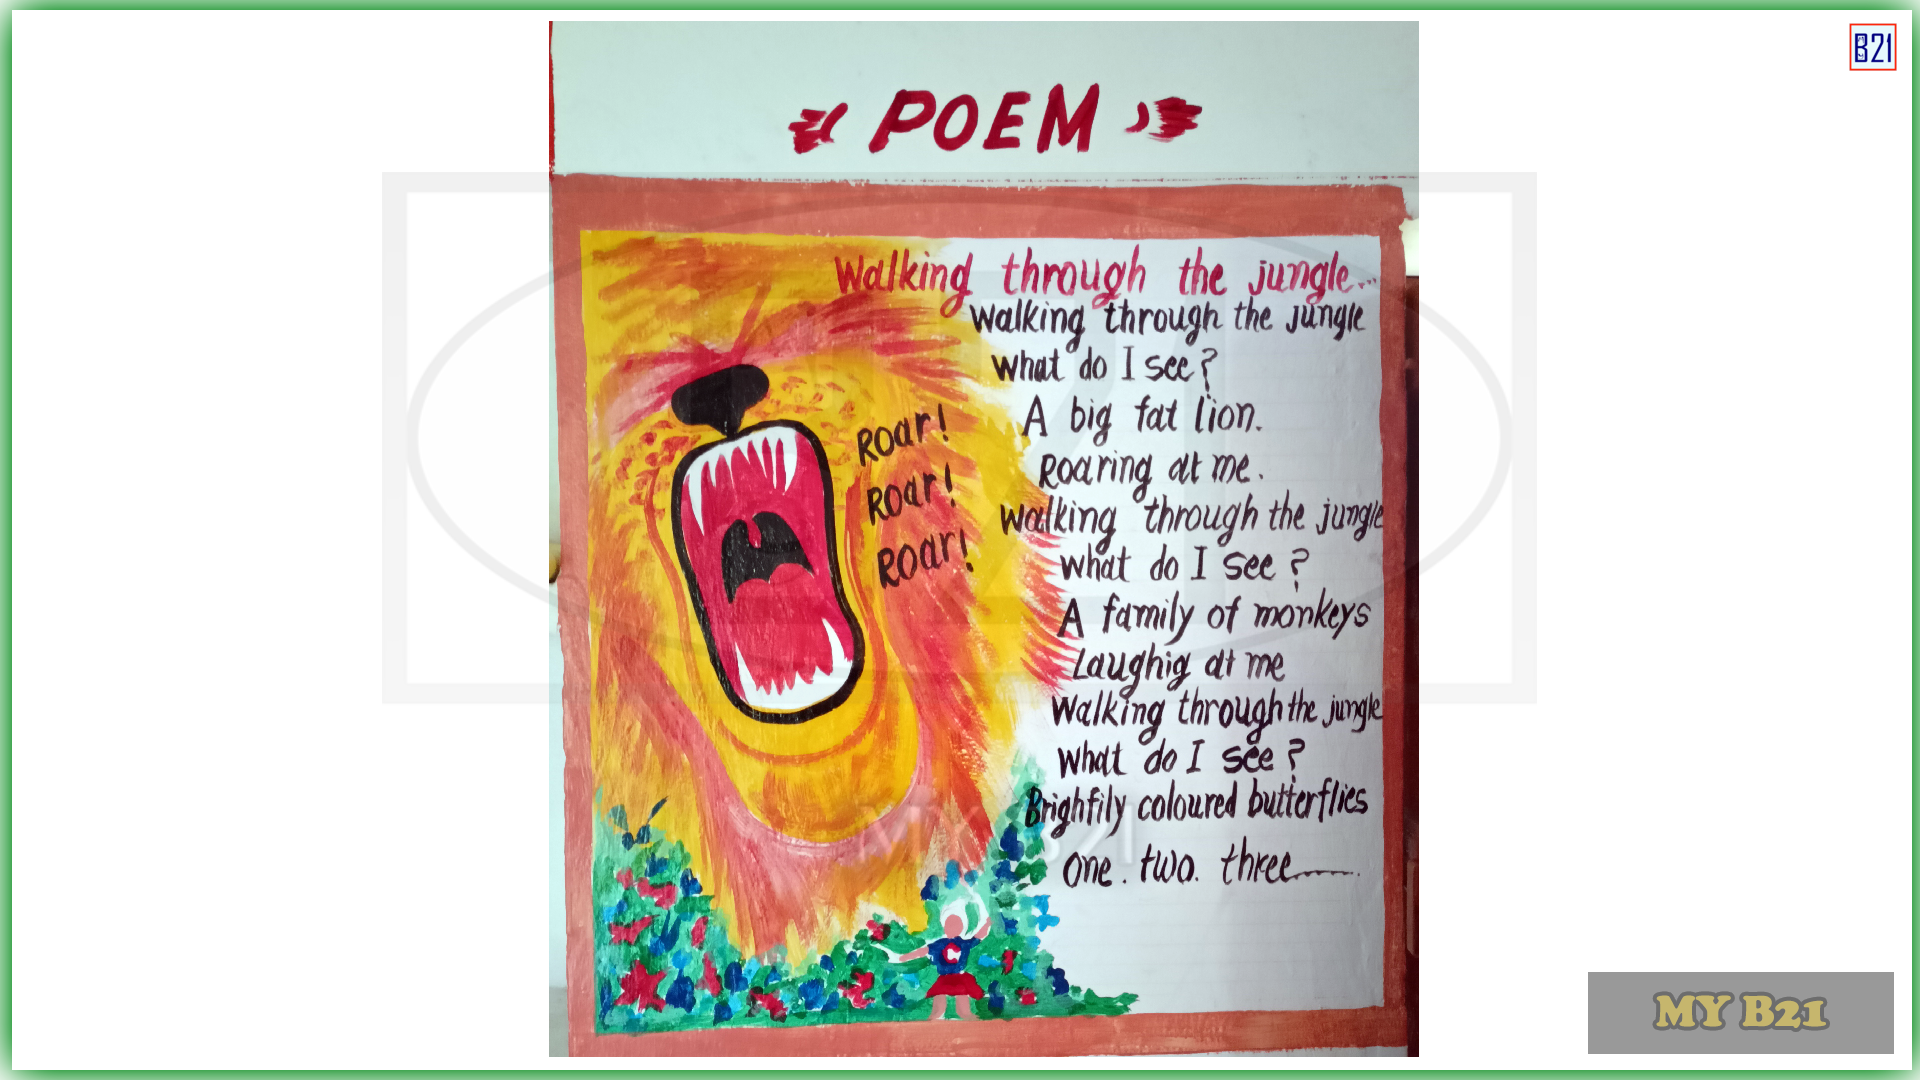 B21
POEM
Walking through the jungle...
Walking through the jungle
What do I see?
A big fat lion.
Roaring at me.
Roar!
Roar!
Roar!
Walking through the jungle
What do I see?
A family of monkeys
Laughig at me
Walking through the jungle
What do I see?
Brighfily coloured butterflies
One. two. three.......
MY B21
MY B21